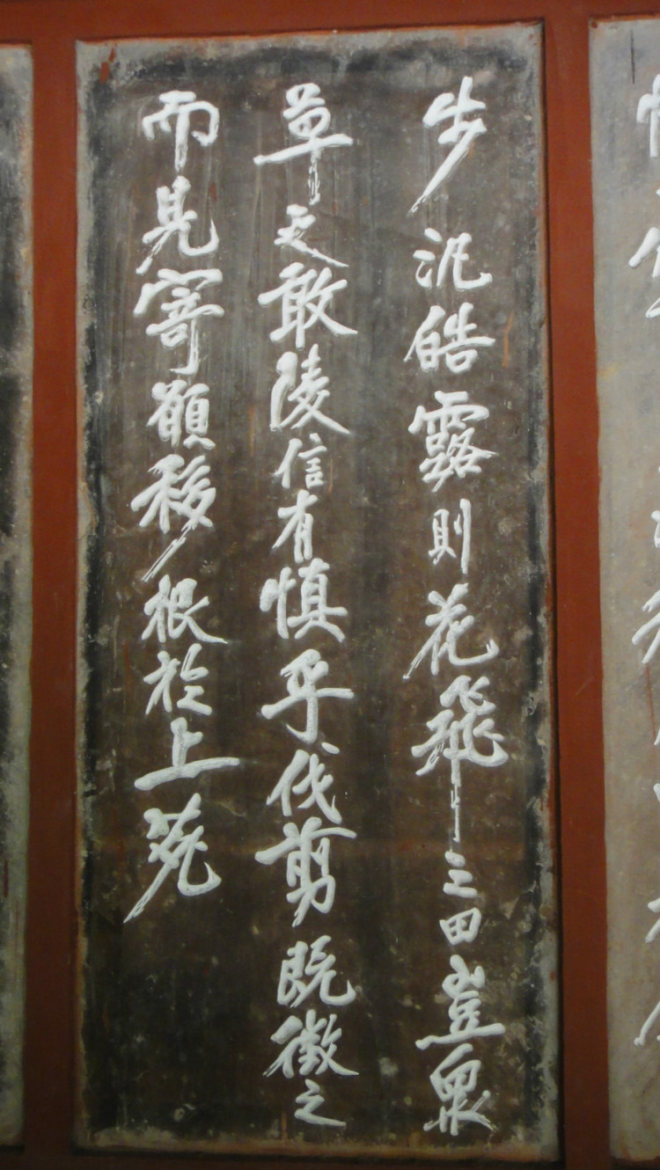 步汎皓露則花飛三田豈衆
草之敢陵信有慎乎伐剪既徵之
而見寄願移根於上苑